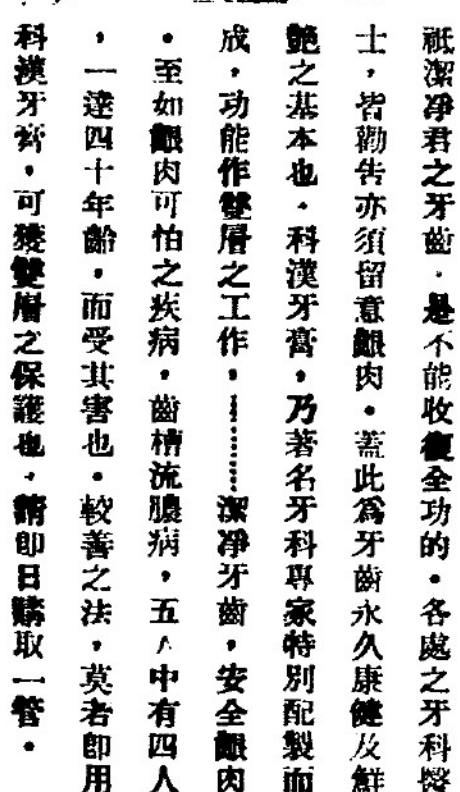 祇潔凈君之牙齒．是不能收復全功的。各處之牙科醫
士，皆勸告亦須留意齦肉。蓋此爲牙齒永久康健及鮮
艷之基本也．科漢牙膏，乃著名牙科專家特別配製而
成，功能作雙層之工作，………潔凈牙齒，安全齦肉
。至如齦肉可怕之疾病，齒槽流膿病，五人中有四人
，一達四十年齡，而受其害也。較善之法，莫若即用
科漢牙膏，可獲雙層之保護也．請即日購取一管。